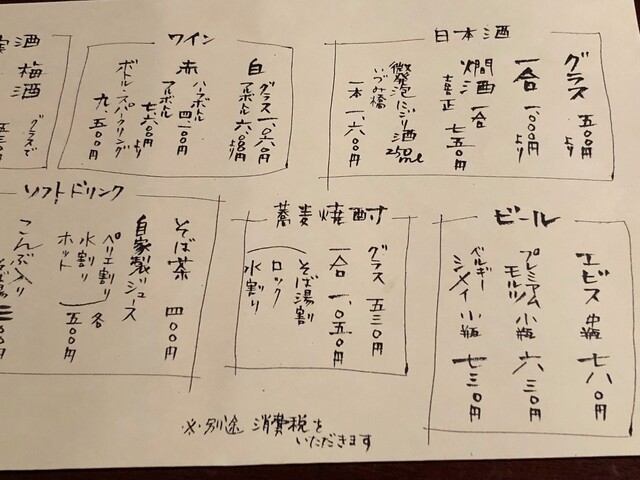 日本酒
グラス 五〇〇円より
一合 一、〇〇〇円より
燗酒 一合
喜正 七五〇円
微発泡にごり酒 250ml
いづみ橋
一本 一、六〇〇円
ワイン
白
グラス 一、〇六〇円
フルボトル 六、〇〇〇円より
赤
ハーフボトル 四、二〇〇円
フルボトル 七、六〇〇円より
ボトル・スパークリング 九、五〇〇円
酒
梅酒
グラスで
五三〇
ビール
エビス 中瓶 七八〇円
プレミアムモルツ 小瓶 六三〇円
ベルギー
シメイ 小瓶 七三〇円
蕎麦焼酎
グラス 五三〇円
一合 一、〇五〇円
そば湯割
ロック
水割り
ソフトドリンク
そば茶 四〇〇円
自家製ジュース
ペリエ割り
水割り
ホット
各 五〇〇円
こんぶ入り
※別途 消費税を
いただきます